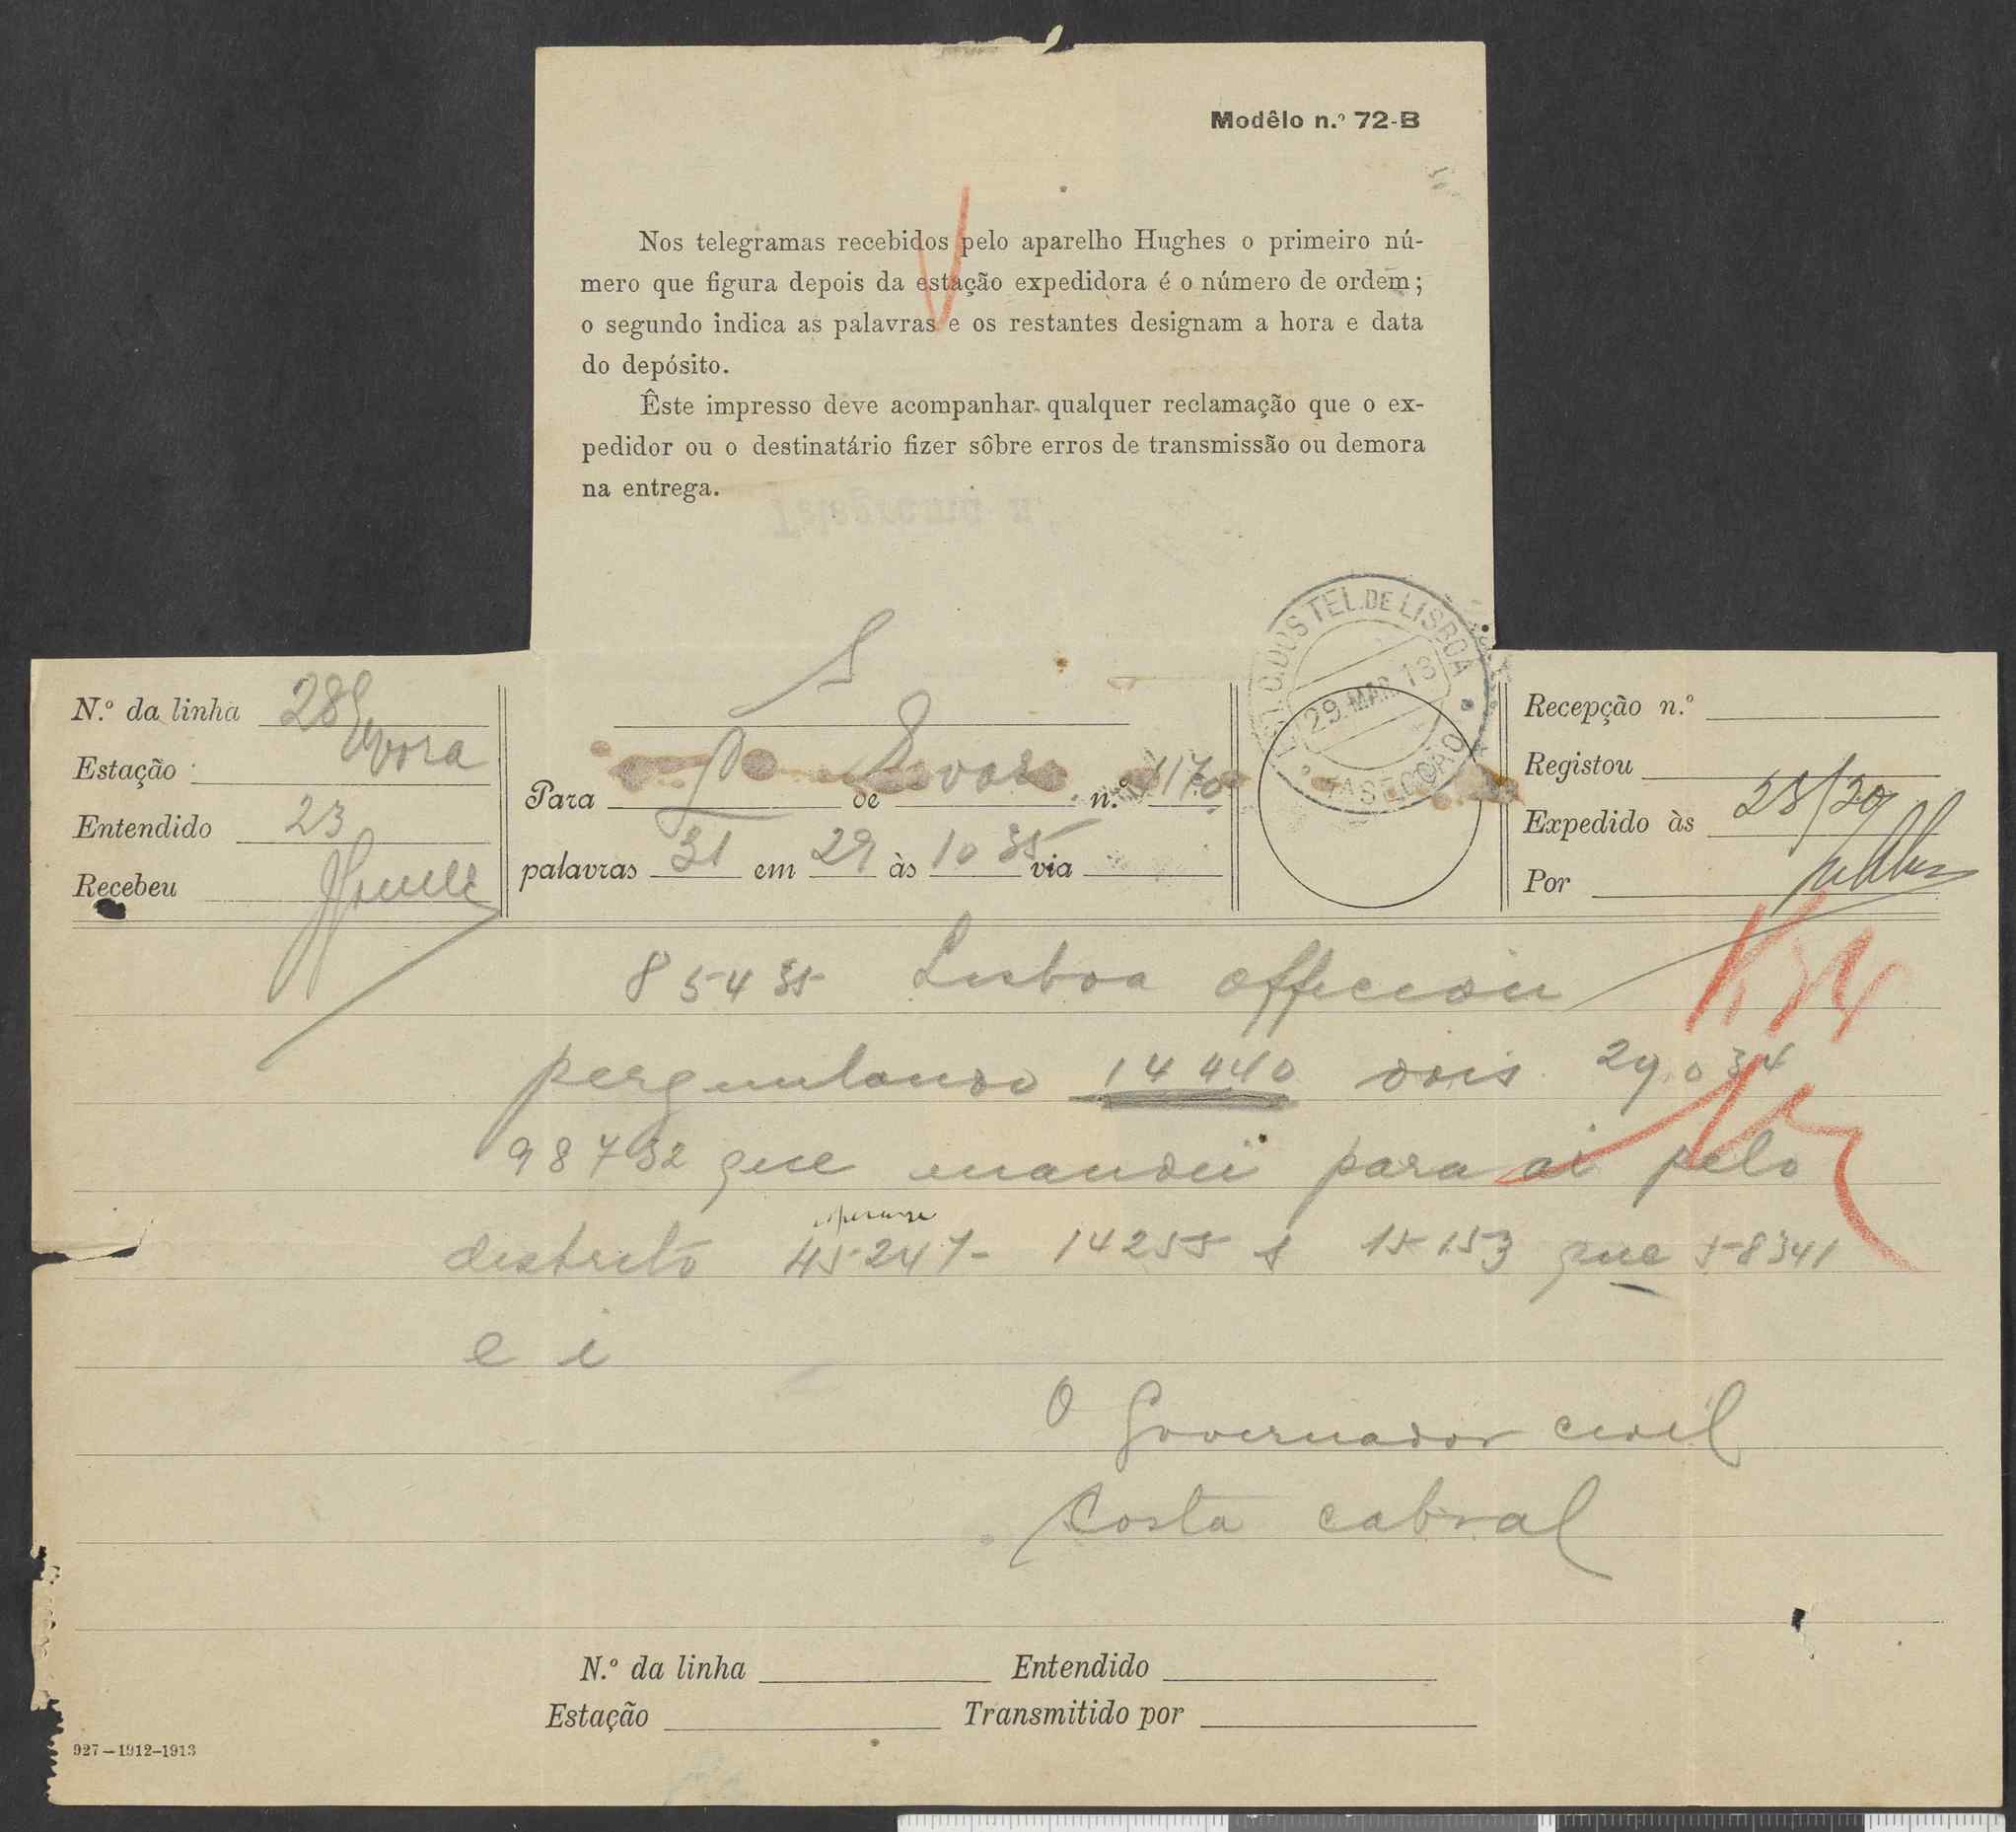 Modêlo n.º 72-B
Nos telegramas recebidos pelo aparelho Hughes o primeiro nú-
mero que figura depois da estação expedidora é o número de ordem;
o segundo indica as palavras e os restantes designam a hora e data
do depósito.
Êste impresso deve acompanhar qualquer reclamação que o ex-
pedidor ou o destinatário fizer sôbre erros de transmissão ou demora
na entrega.
EST. C. DOS TEL. DE LISBOA
29. MAR. 13
SECÇÃO
S
N.º da linha 289
Estação Evora
Entendido 23
Recebeu
Para de Evora n.º 1170
palavras 31 em 29 às 10 35 via
Recepção n.º
Registou
Expedido às
Por
85435 Lisboa officiou
perguntando 14440 dois 29034
98732 que mandei para ai pelo
distrito 45247 14255 s 15153 que 58341
e i
O Governador civil
Costa Cabral
N.º da linha Entendido
Estação Transmitido por
927—1912-1913